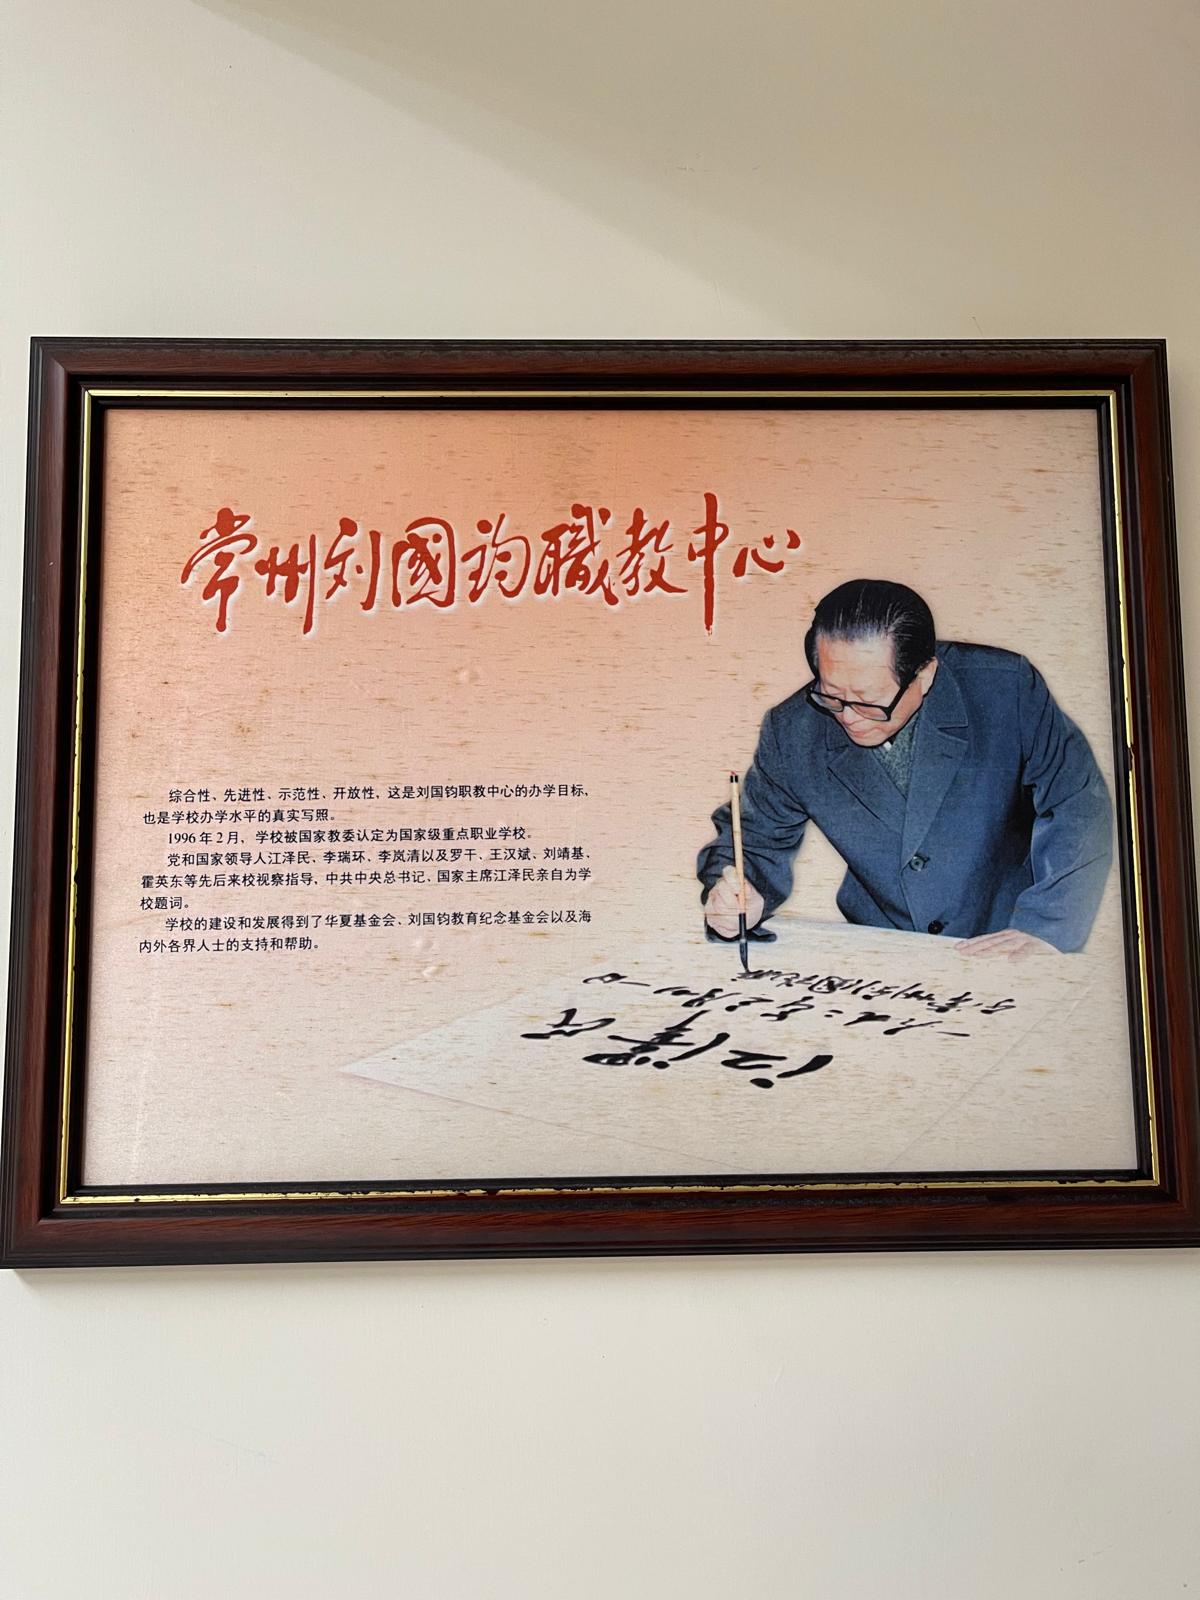 常州刘國钧職教中心
综合性、先进性、示范性、开放性，这是刘国钧职教中心的办学目标，
也是学校办学水平的真实写照。
1996 年 2 月，学校被国家教委认定为国家级重点职业学校。
党和国家领导人江泽民、李瑞环、李岚清以及罗干、王汉斌、刘靖基、
霍英东等先后来校视察指导，中共中央总书记、国家主席江泽民亲自为学
校题词。
学校的建设和发展得到了华夏基金会、刘国钧教育纪念基金会以及海
内外各界人士的支持和帮助。
江泽民